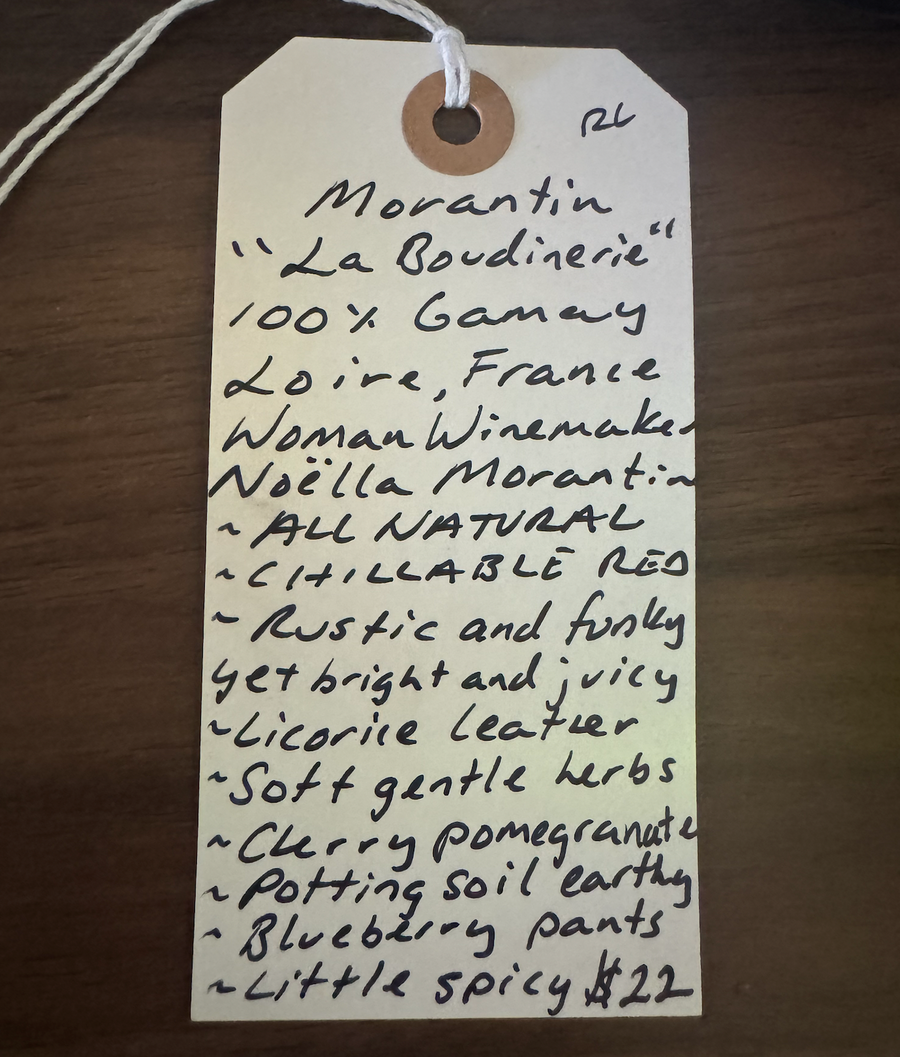 RL
Morantin
"La Boudinerie"
100% Gamay
Loire, France
Woman Winemaker
Noëlla Morantin
~ ALL NATURAL
~ CHILLABLE RED
~ Rustic and funky
yet bright and juicy
~Licorice leather
~Soft gentle herbs
~Cherry pomegranate
~Potting soil earthy
~ Blueberry pants
~Little spicy $22